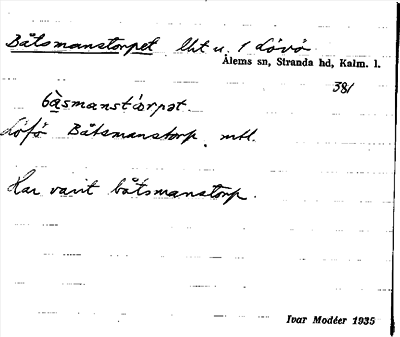 Båtsmanstorpet lht u. 1 Lövö
Ålems sn, Stranda hd, Kalm. l.
381
bàsmanstórpət.
Löfö Båtsmanstorp. mtl.
Har varit båtsmanstorp.
Ivar Modéer 1935